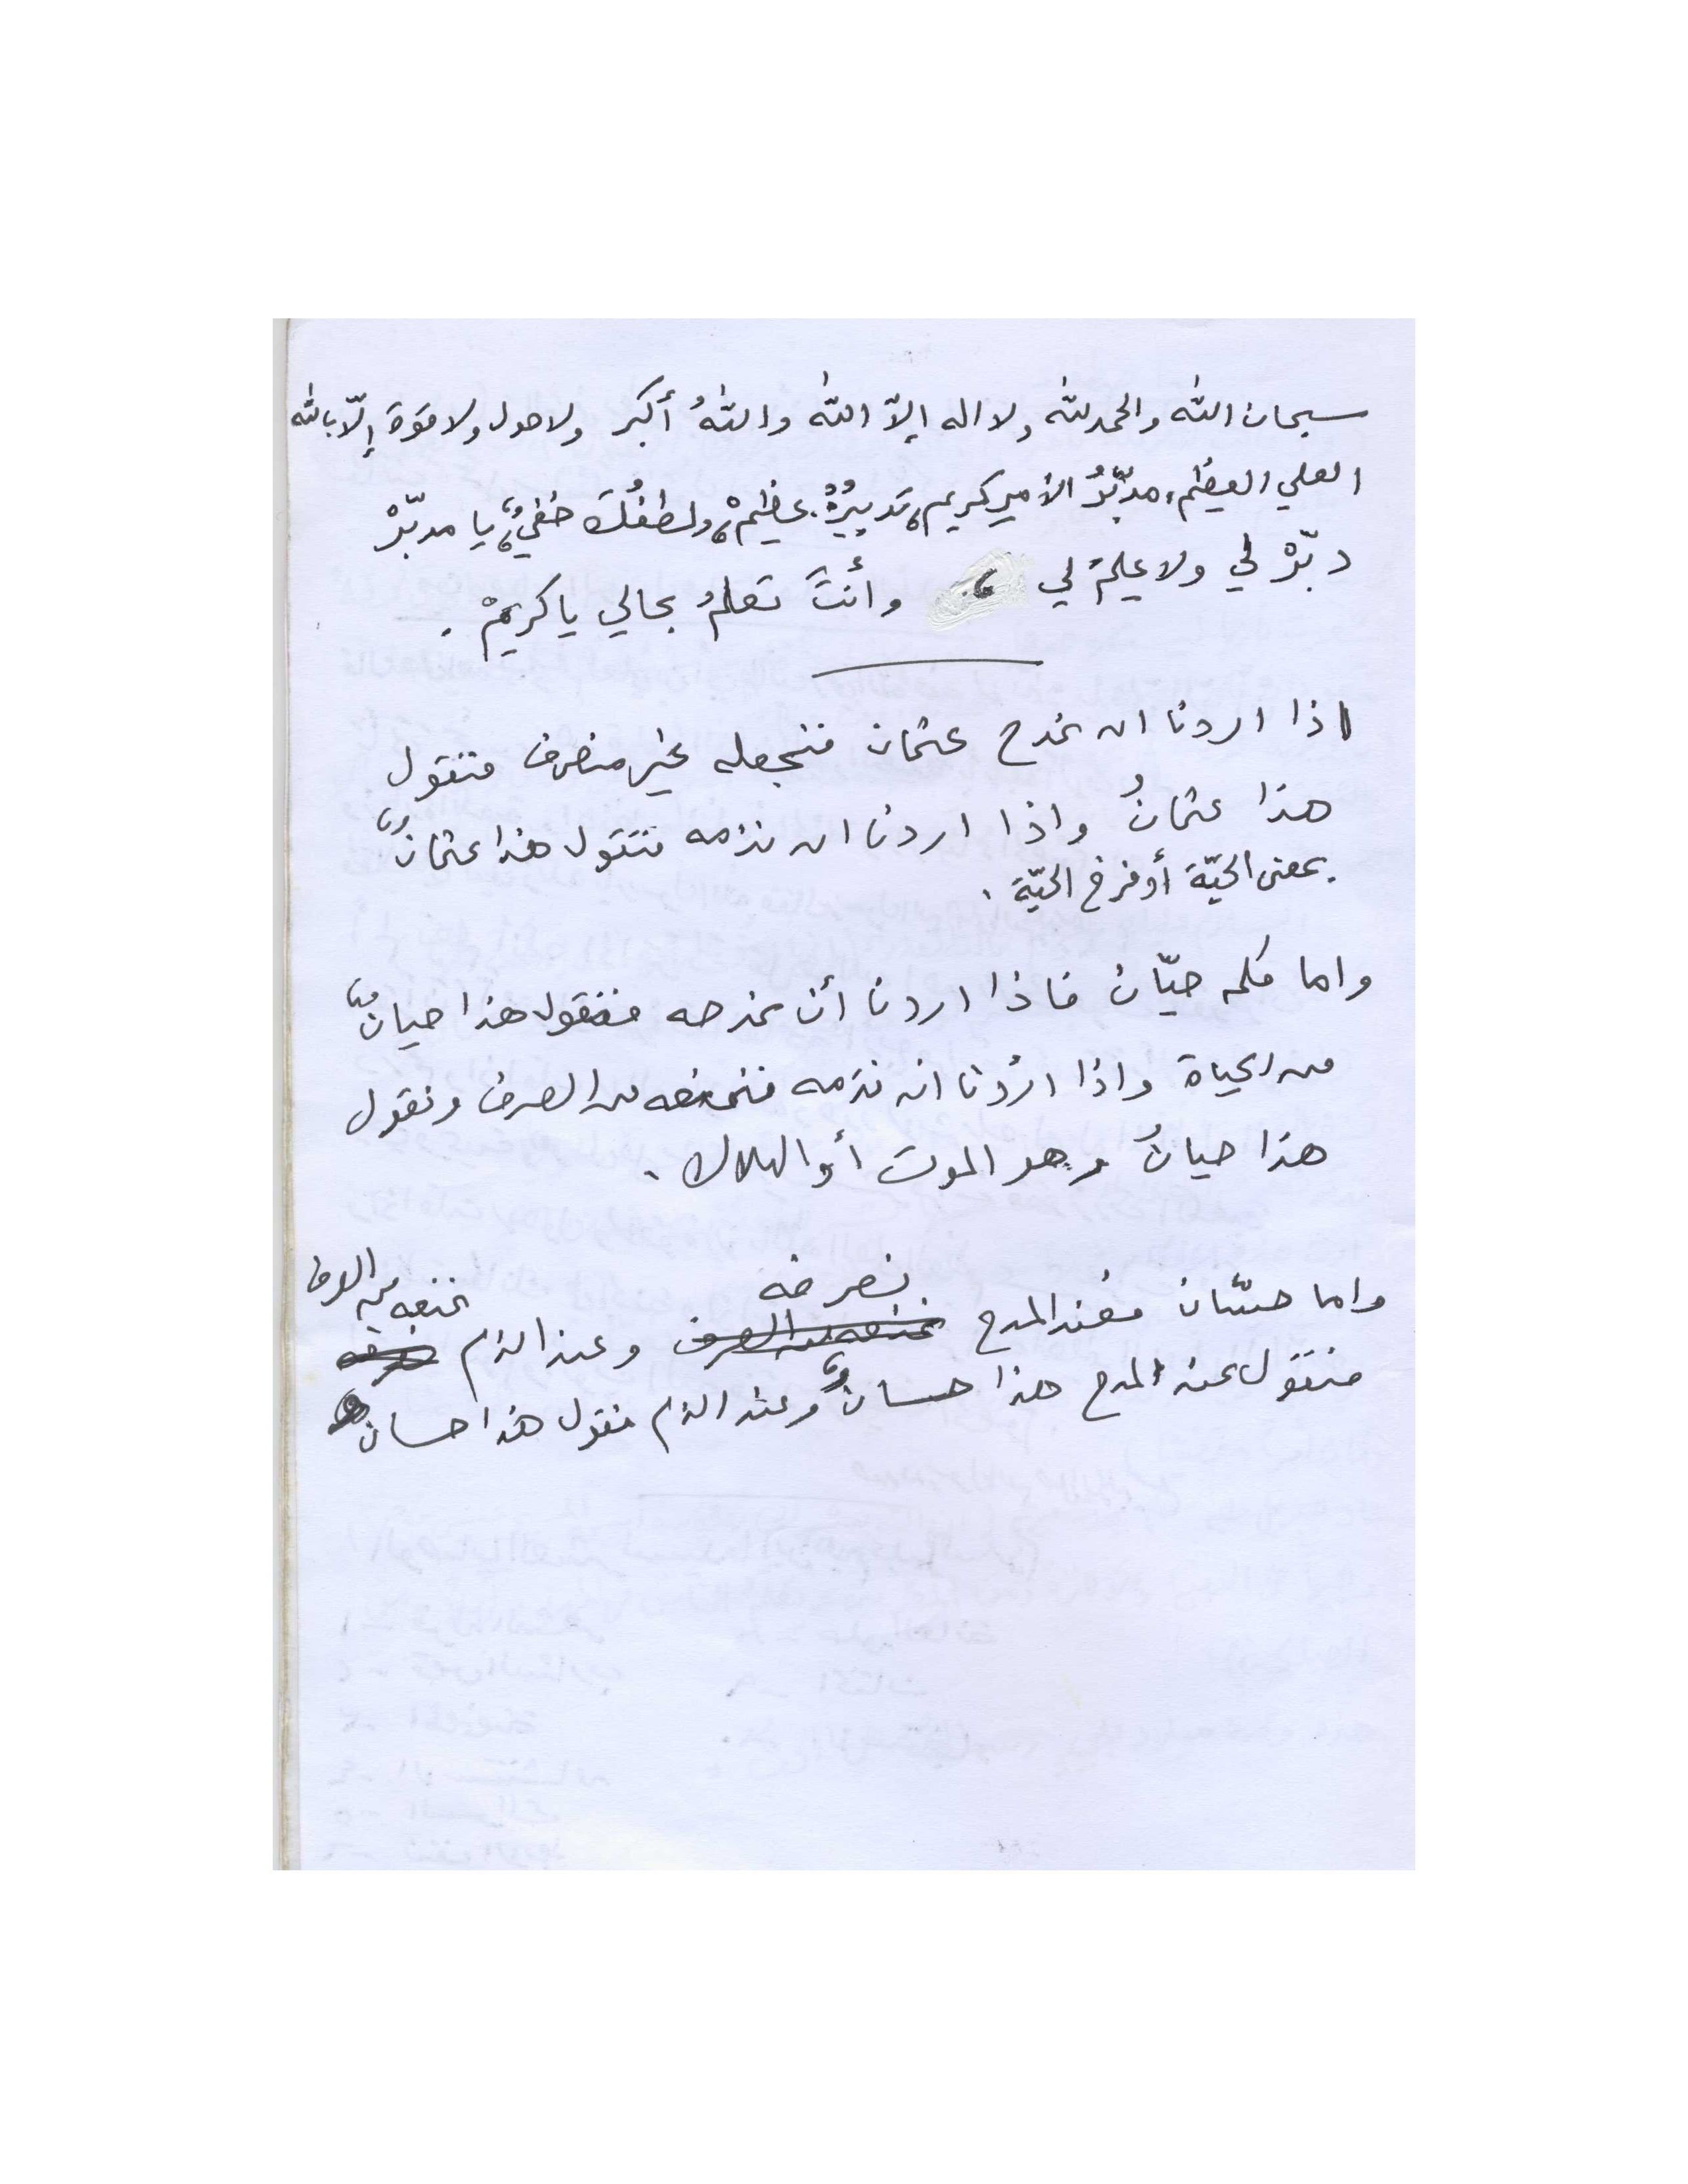 سبحان الله والحمد لله ولا اله إلاّ الله واللهُ أكبر ولا حول ولا قوّة إلاّ بالله
العلي العظيم، مدبّرُ الأمر كريم، تدبيرُهُ عظيمْ، ولطفُكَ خفيٌ، يا مدبّرْ
دبّرْ لي ولا علِمَ لي ، وأنتَ تعلمُ بحالي يا كريمْ .
اذا اردنا ان نمدح عثمان فنجعله غير منصرف فنقول
هذا عثمانُ واذا اردنا ان نذمه فنقول هذا عثمانٌ
بمعنى الحيّة أو فرخ الحيّة .
واما كلمه حيّان فاذا اردنا أن نمدحه فنقول هذا حيانٌ
من الحياة واذا اردنا ان نذمه فنمنعه من الصرف ونقول
هذا حيانُ وهو الموت أو الهلاك .
واما حسّان فعند المدح نصرفه وعند الذم نمنعه من الصرف
فنقول عند المدح هذا حسانٌ وعند الذم نقول هذا حسانُ